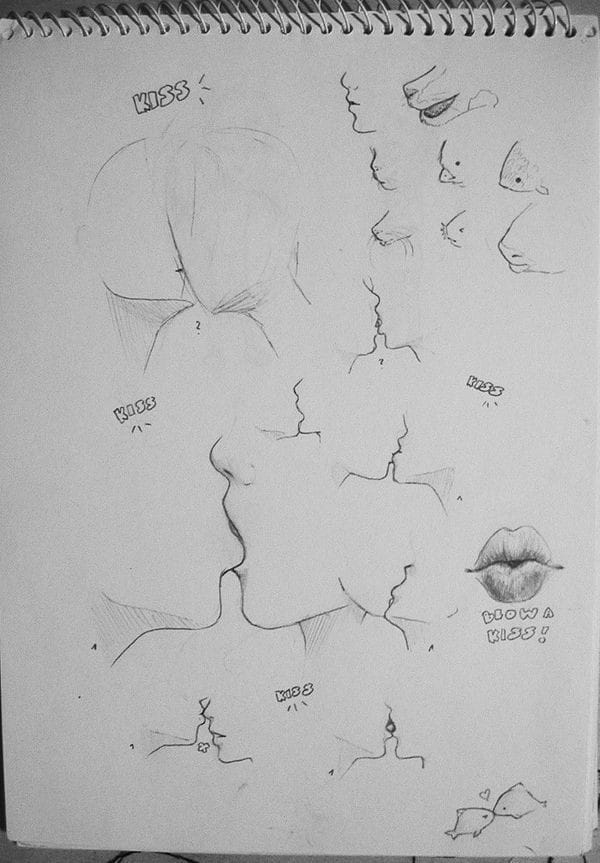 KISS
?
?
KISS
KISS
BLOW A
KISS!
KISS